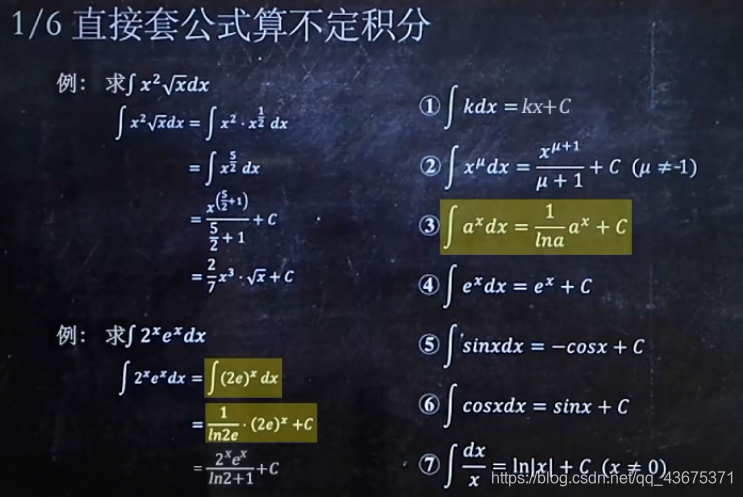 1/6 直接套公式算不定积分
例： 求∫x²√x̅dx
∫x²√x̅dx = ∫x²·x^(1/2) dx
= ∫x^(5/2) dx
= x^(5/2+1)/(5/2+1) + C
= 2/7 x³·√x̅ + C
例： 求∫2ˣeˣdx
∫2ˣeˣdx = ∫(2e)ˣ dx
= 1/ln2e · (2e)ˣ +C
= 2ˣeˣ/ln2+1 +C
① ∫kdx = kx+C
② ∫x^μ dx = x^(μ+1)/(μ+1) + C (μ ≠-1)
③ ∫aˣdx = 1/lna aˣ + C
④ ∫eˣdx = eˣ + C
⑤ ∫sinxdx = −cosx + C
⑥ ∫cosxdx = sinx + C
⑦ ∫dx/x = ln|x| + C (x ≠ 0)
https://blog.csdn.net/qq_43675371